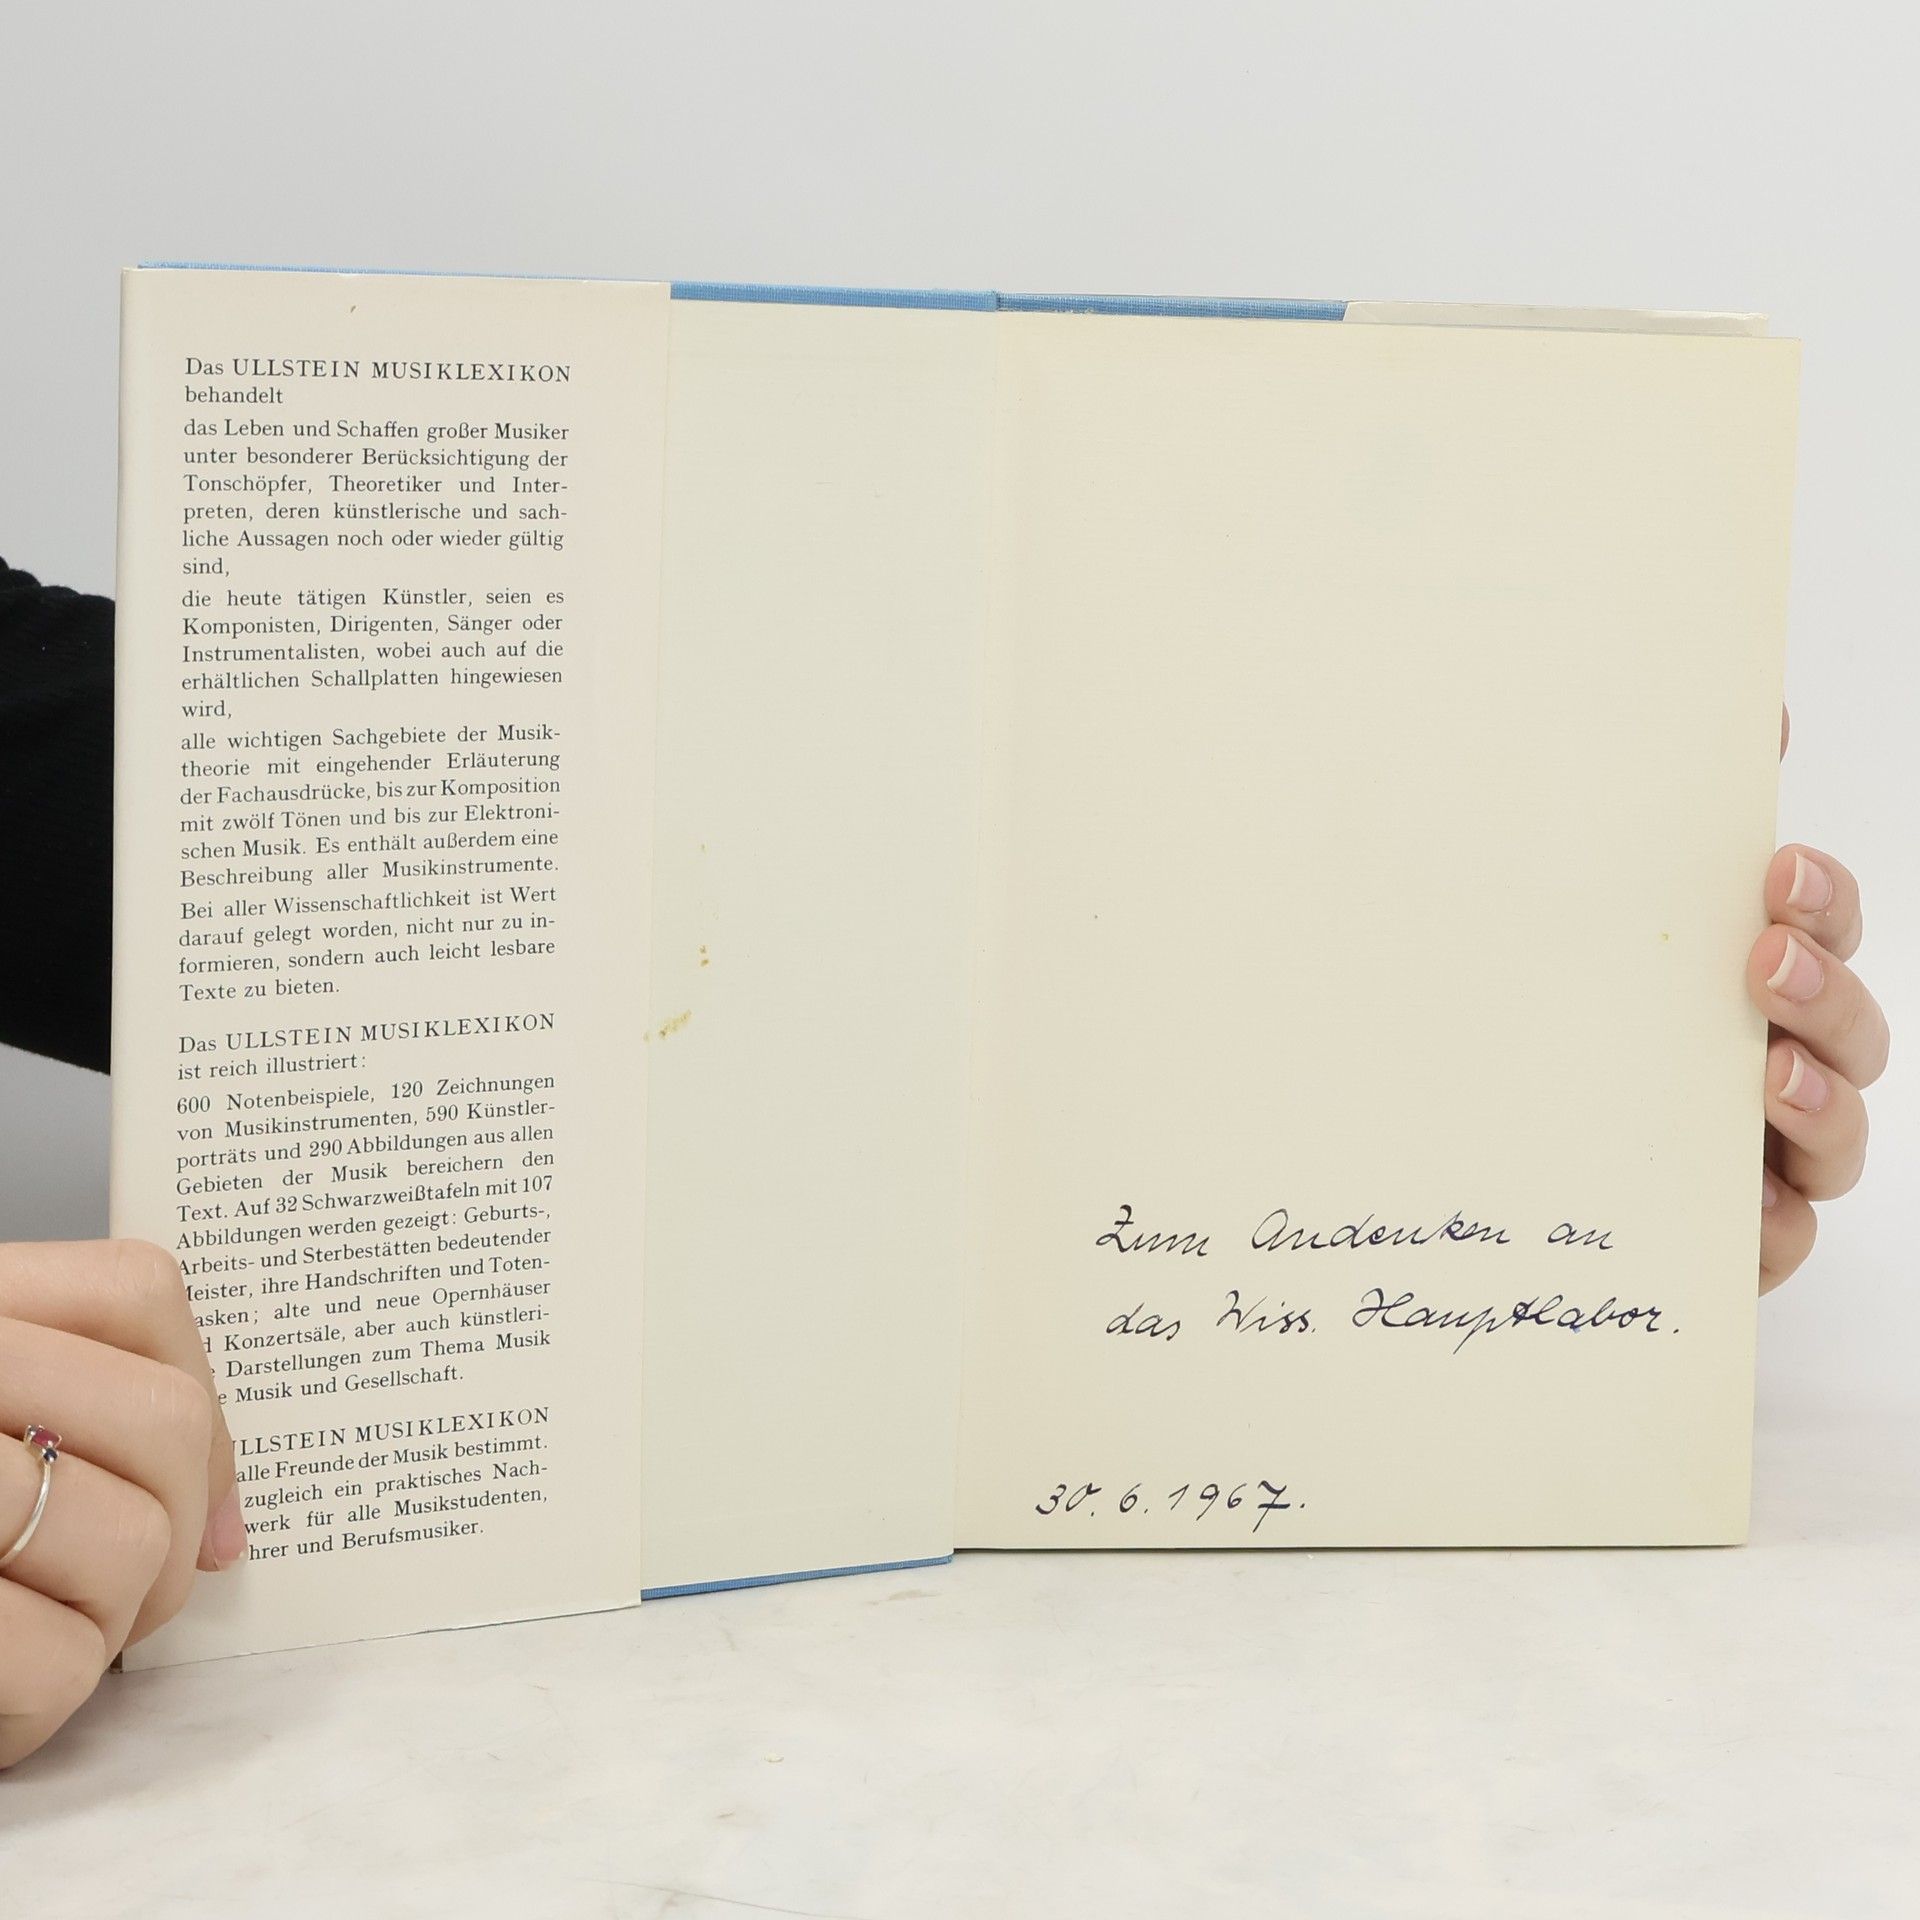 Das ULLSTEIN MUSIKLEXIKON
behandelt
das Leben und Schaffen großer Musiker
unter besonderer Berücksichtigung der
Tonschöpfer, Theoretiker und Inter-
preten, deren künstlerische und sach-
liche Aussagen noch oder wieder gültig
sind,
die heute tätigen Künstler, seien es
Komponisten, Dirigenten, Sänger oder
Instrumentalisten, wobei auch auf die
erhältlichen Schallplatten hingewiesen
wird,
alle wichtigen Sachgebiete der Musik-
theorie mit eingehender Erläuterung
der Fachausdrücke, bis zur Komposition
mit zwölf Tönen und bis zur Elektroni-
schen Musik. Es enthält außerdem eine
Beschreibung aller Musikinstrumente.
Bei aller Wissenschaftlichkeit ist Wert
darauf gelegt worden, nicht nur zu in-
formieren, sondern auch leicht lesbare
Texte zu bieten.
Das ULLSTEIN MUSIKLEXIKON
ist reich illustriert:
600 Notenbeispiele, 120 Zeichnungen
von Musikinstrumenten, 590 Künstler-
porträts und 290 Abbildungen aus allen
Gebieten der Musik bereichern den
Text. Auf 32 Schwarzweißtafeln mit 107
Abbildungen werden gezeigt: Geburts-,
Arbeits- und Sterbestätten bedeutender
Meister, ihre Handschriften und Toten-
asken; alte und neue Opernhäuser
d Konzertsäle, aber auch künstleri-
e Darstellungen zum Thema Musik
e Musik und Gesellschaft.
ULLSTEIN MUSIKLEXIKON
alle Freunde der Musik bestimmt.
zugleich ein praktisches Nach-
werk für alle Musikstudenten,
hrer und Berufsmusiker.
Zum Andenken an
das Wiss. Hauptlabor.
30.6.1967.